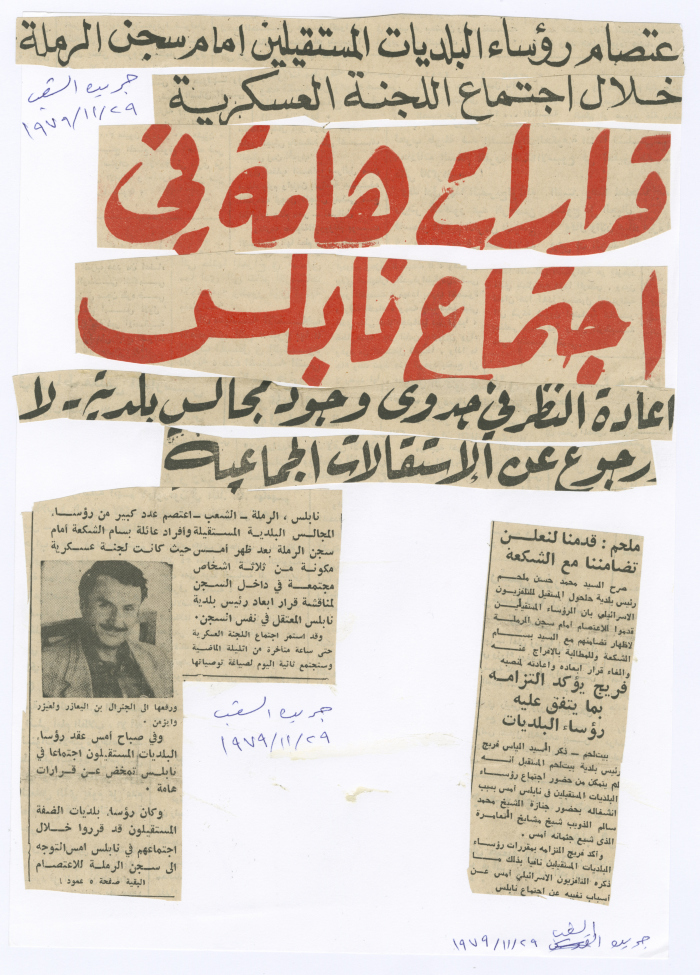 عتصام رؤساء البلديات المستقيلين امام سجن الرملة
خلال اجتماع اللجنة العسكرية
جريدة الشعب
١٩٧٩/١١/٢٩
قرارات هامة في
اجتماع نابلس
اعادة النظر في جدوى وجود مجالس بلدية - لا
رجوع عن الاستقالات الجماعية
نابلس ، الرملة - الشعب - اعتصم عدد كبير من رؤساء
المجالس البلدية المستقيلة وأفراد عائلة بسام الشكعة أمام
سجن الرملة بعد ظهر أمس حيث كانت لجنة عسكرية
مكونة من ثلاثة اشخاص
مجتمعة في داخل السجن
لمناقشة قرار ابعاد رئيس بلدية
نابلس المعتقل في نفس السجن.
وقد استمر اجتماع اللجنة العسكرية
حتى ساعة متأخرة من الليلة الماضية
وستجتمع ثانية اليوم لصياغة توصياتها
ورفعها الى الجنرال بن اليعازر ولعيزر
وايزمن .
وفي صباح أمس عقد رؤساء
البلديات المستقيلون اجتماعا في
نابلس تمخض عن قرارات
هامة .
وكان رؤساء بلديات الضفة
المستقيلون قد قرروا خلال
اجتماعهم في نابلس امس التوجه
الى سجن الرملة للاعتصام
البقية صفحة ٥ عمود ١
جريدة الشعب
١٩٧٩/١١/٢٩
ملحم : قدمنا لنعلن
تضامننا مع الشكعة
صرح السيد محمد حسن ملحم
رئيس بلدية حلحول المستقيل للتلفزيون
الاسرائيلي بان الرؤساء المستقيلين
قدموا للاعتصام امام سجن الرملة
لاظهار تضامنهم مع السيد بسام
الشكعة وللمطالبة بالافراج عنه
والغاء قرار ابعاده واعادته لمنصبه
فريج يؤكد التزامه
بما يتفق عليه
رؤساء البلديات
بيت لحم - ذكر السيد الياس فريج
رئيس بلدية بيت لحم المستقيل انه
لم يتمكن من حضور اجتماع رؤساء
البلديات المستقيلين في نابلس امس بسبب
انشغاله بحضور جنازة الشيخ محمد
سالم الذويب شيخ مشايخ التعامرة
الذي شيع جثمانه امس .
واكد فريج التزامه بمقررات رؤساء
البلديات المستقيلين نافيا بذلك ما
ذكره التلفزيون الاسرائيلي أمس عن
أسباب تغيبه عن اجتماع نابلس
جريدة الشعب ١٩٧٩/١١/٢٩